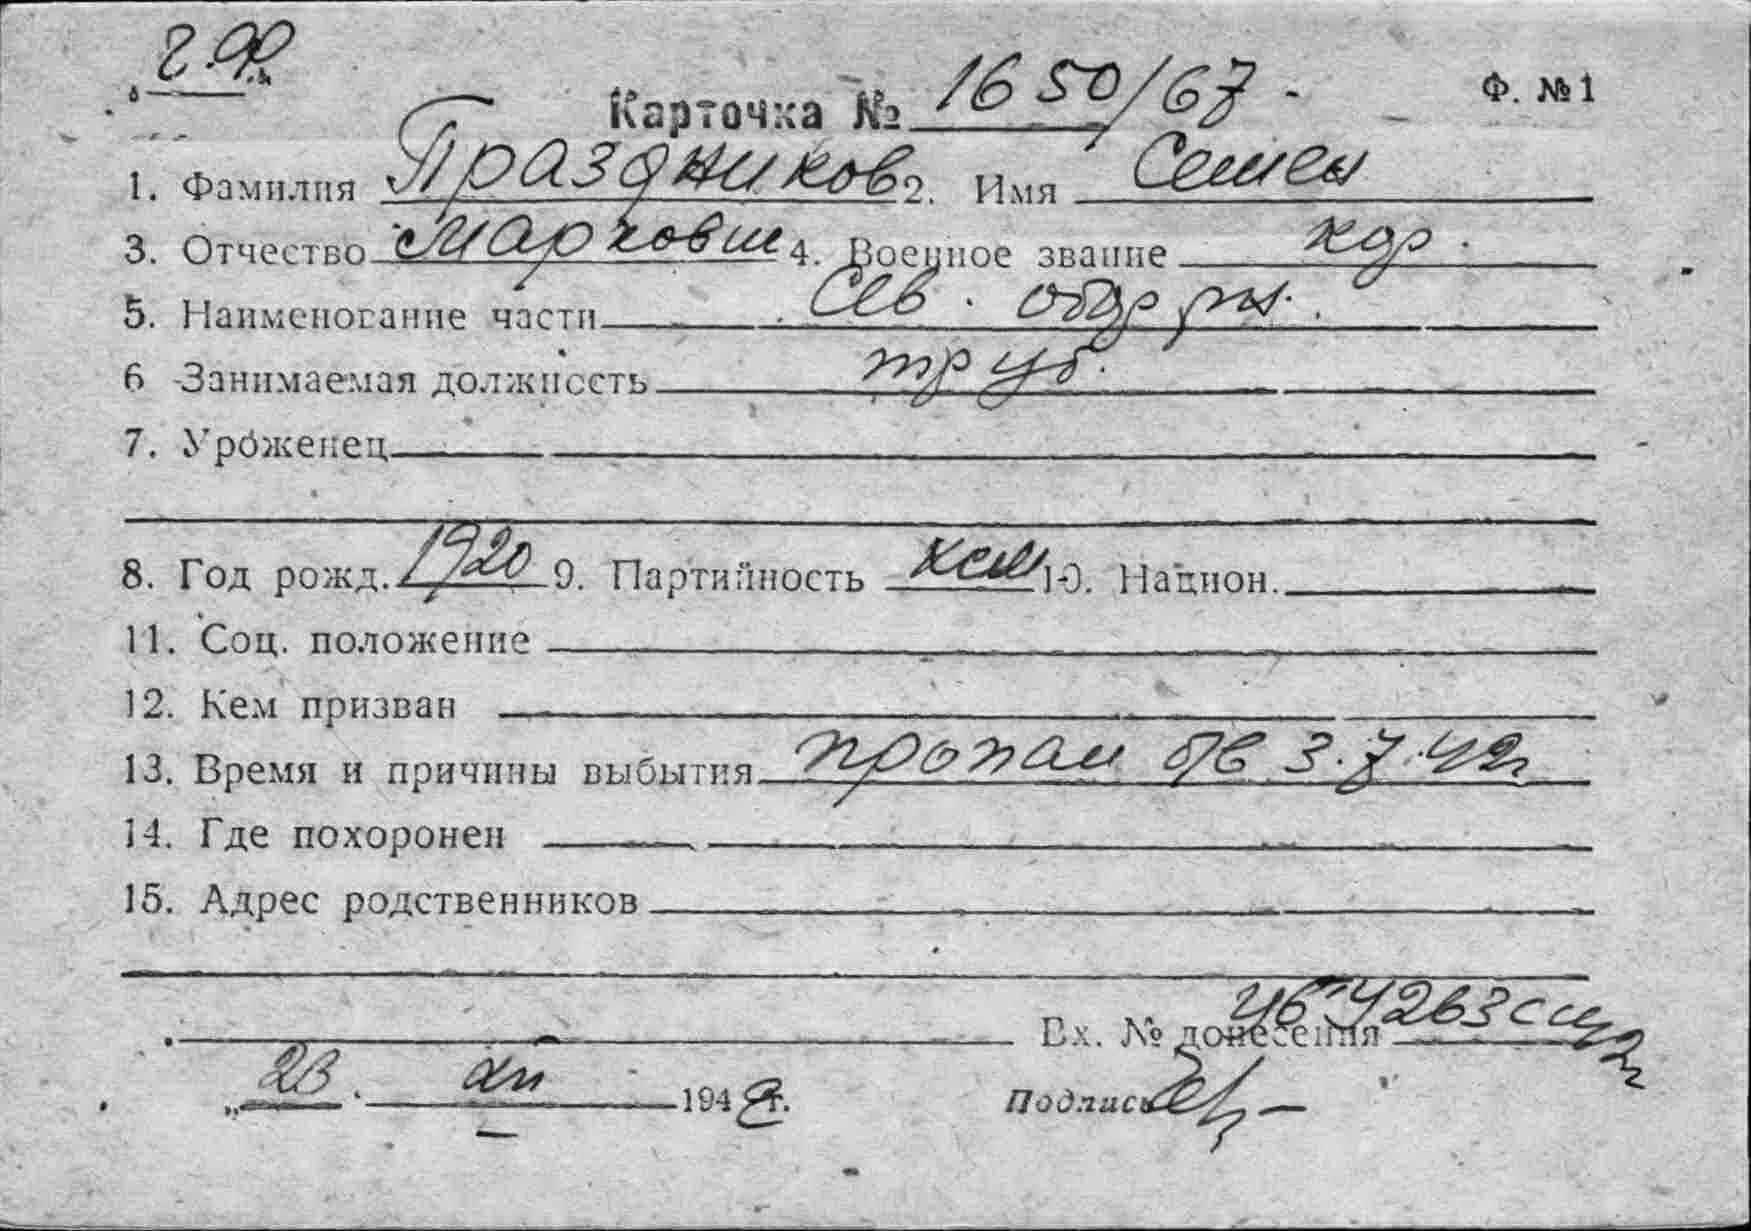 Карточка № 1650/67 - Ф. №1
1. Фамилия Праздников 2. Имя Семен
3. Отчество Маркович 4. Военное звание кдр.
5. Наименование части Сев. обор рн.
6 Занимаемая должность
7. Уроженец
8. Год рожд. 1920 9. Партийность ксм 10. Национ.
11. Соц. положение
12. Кем призван
13. Время и причины выбытия пропал б/в 3.7.42г
14. Где похоронен
15. Адрес родственников
Вх. № донесения
„23. 1949г. Подпись